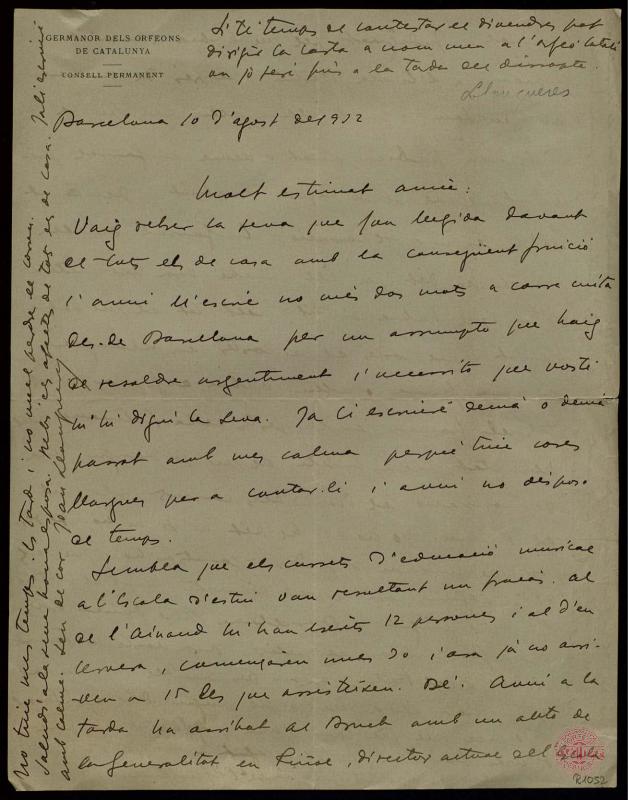 GERMANOR DELS ORFEONS
DE CATALUNYA
CONSELL PERMANENT
Si té temps de contestar el divendres pot
dirigir la carta a nom meu a l'Orfeó Català
on jo seré fins a la tarda del dissapte.
Llongueres
Barcelona 10 d'agost de 1932
Molt estimat amic:
Vaig rebre la seva que fou llegida davant
de tots els de casa amb la consegüent fruició
i avui li escric no més dos mots a corre cuita
des de Barcelona per un assumpto que haig
de resoldre urgentment i necessito que vostè
hi digui la seva. Ja li escriuré demà o demà
passat amb més calma perquè tinc coses
llargues per a contar-li i avui no disposo
de temps.
Sembla que els cursets d'educació musical
a l'Escola d'estiu van resultant un fracàs. Al
de l'Ainaud hi han inscrits 12 persones i al d'en
Cervera, començaren unes 30 i ara ja no arri-
ven a 15 les que assisteixen. Bé. Avui a la
tarda ha arribat al Bruch amb un auto de
la Generalitat en , director actual de l'Escola
No tinc més temps. És tard i no vull perdre el correu.
Saludi a la seva bona esposa. Rebi els afectes de tots els de casa. Ja li escriuré
amb calma. Seu de cor Joan Llongueres
R.1052